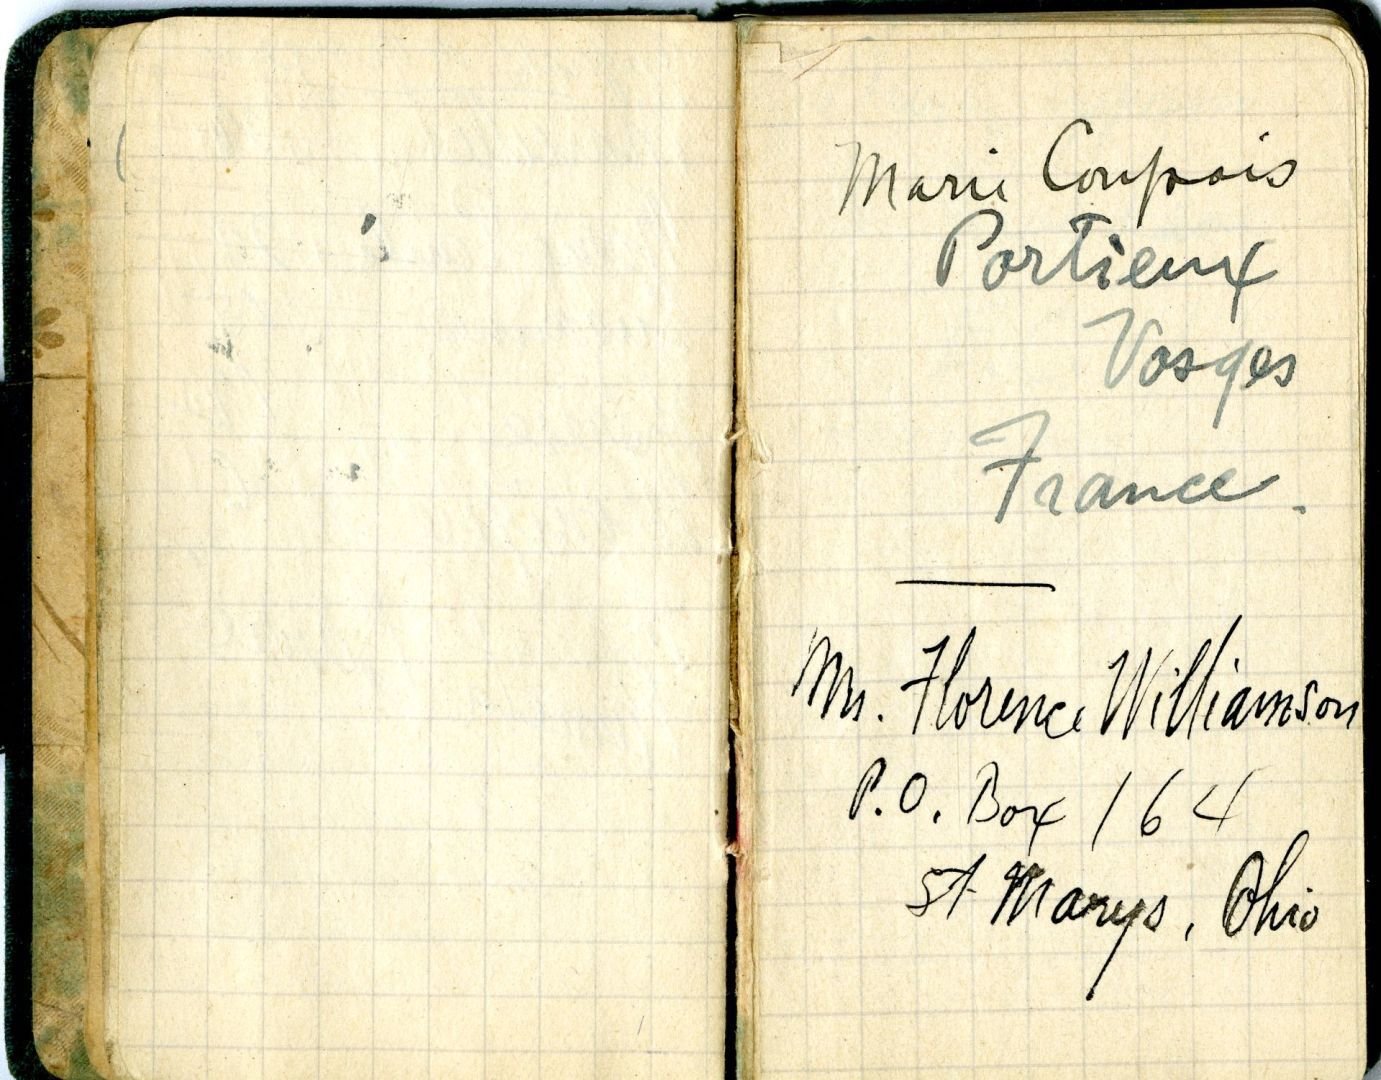 Marie Coupois
Portieux
Vosges
France.
Mrs. Florence Williamson
P.O. Box 164
St Marys, Ohio